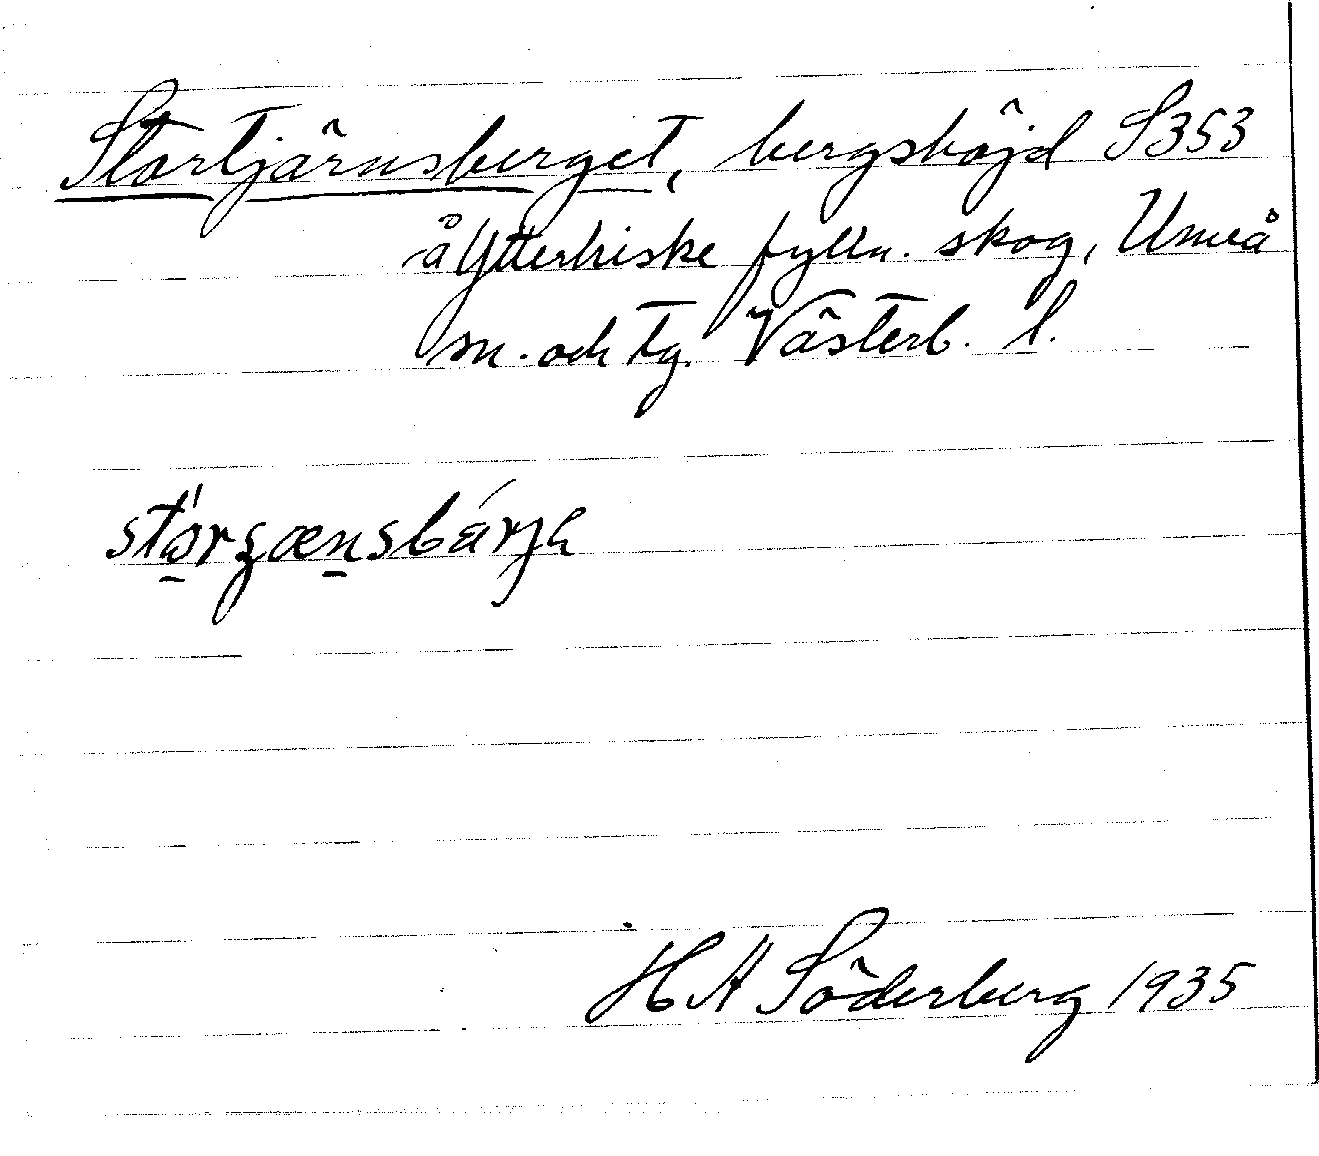 Stortjärnsberget, bergshöjd S353
å Ytterhiske fylln. skog, Umeå
sn. och tg. Västerb. l.
H A Söderberg 1935